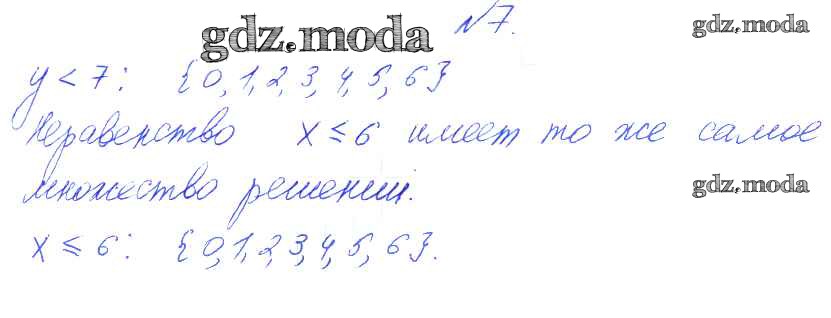 gdz.moda №7. gdz.moda
y < 7: {0, 1, 2, 3, 4, 5, 6}
Неравенство x ≤ 6 имеет то же самое
множество решений. gdz.moda
x ≤ 6: {0, 1, 2, 3, 4, 5, 6}.